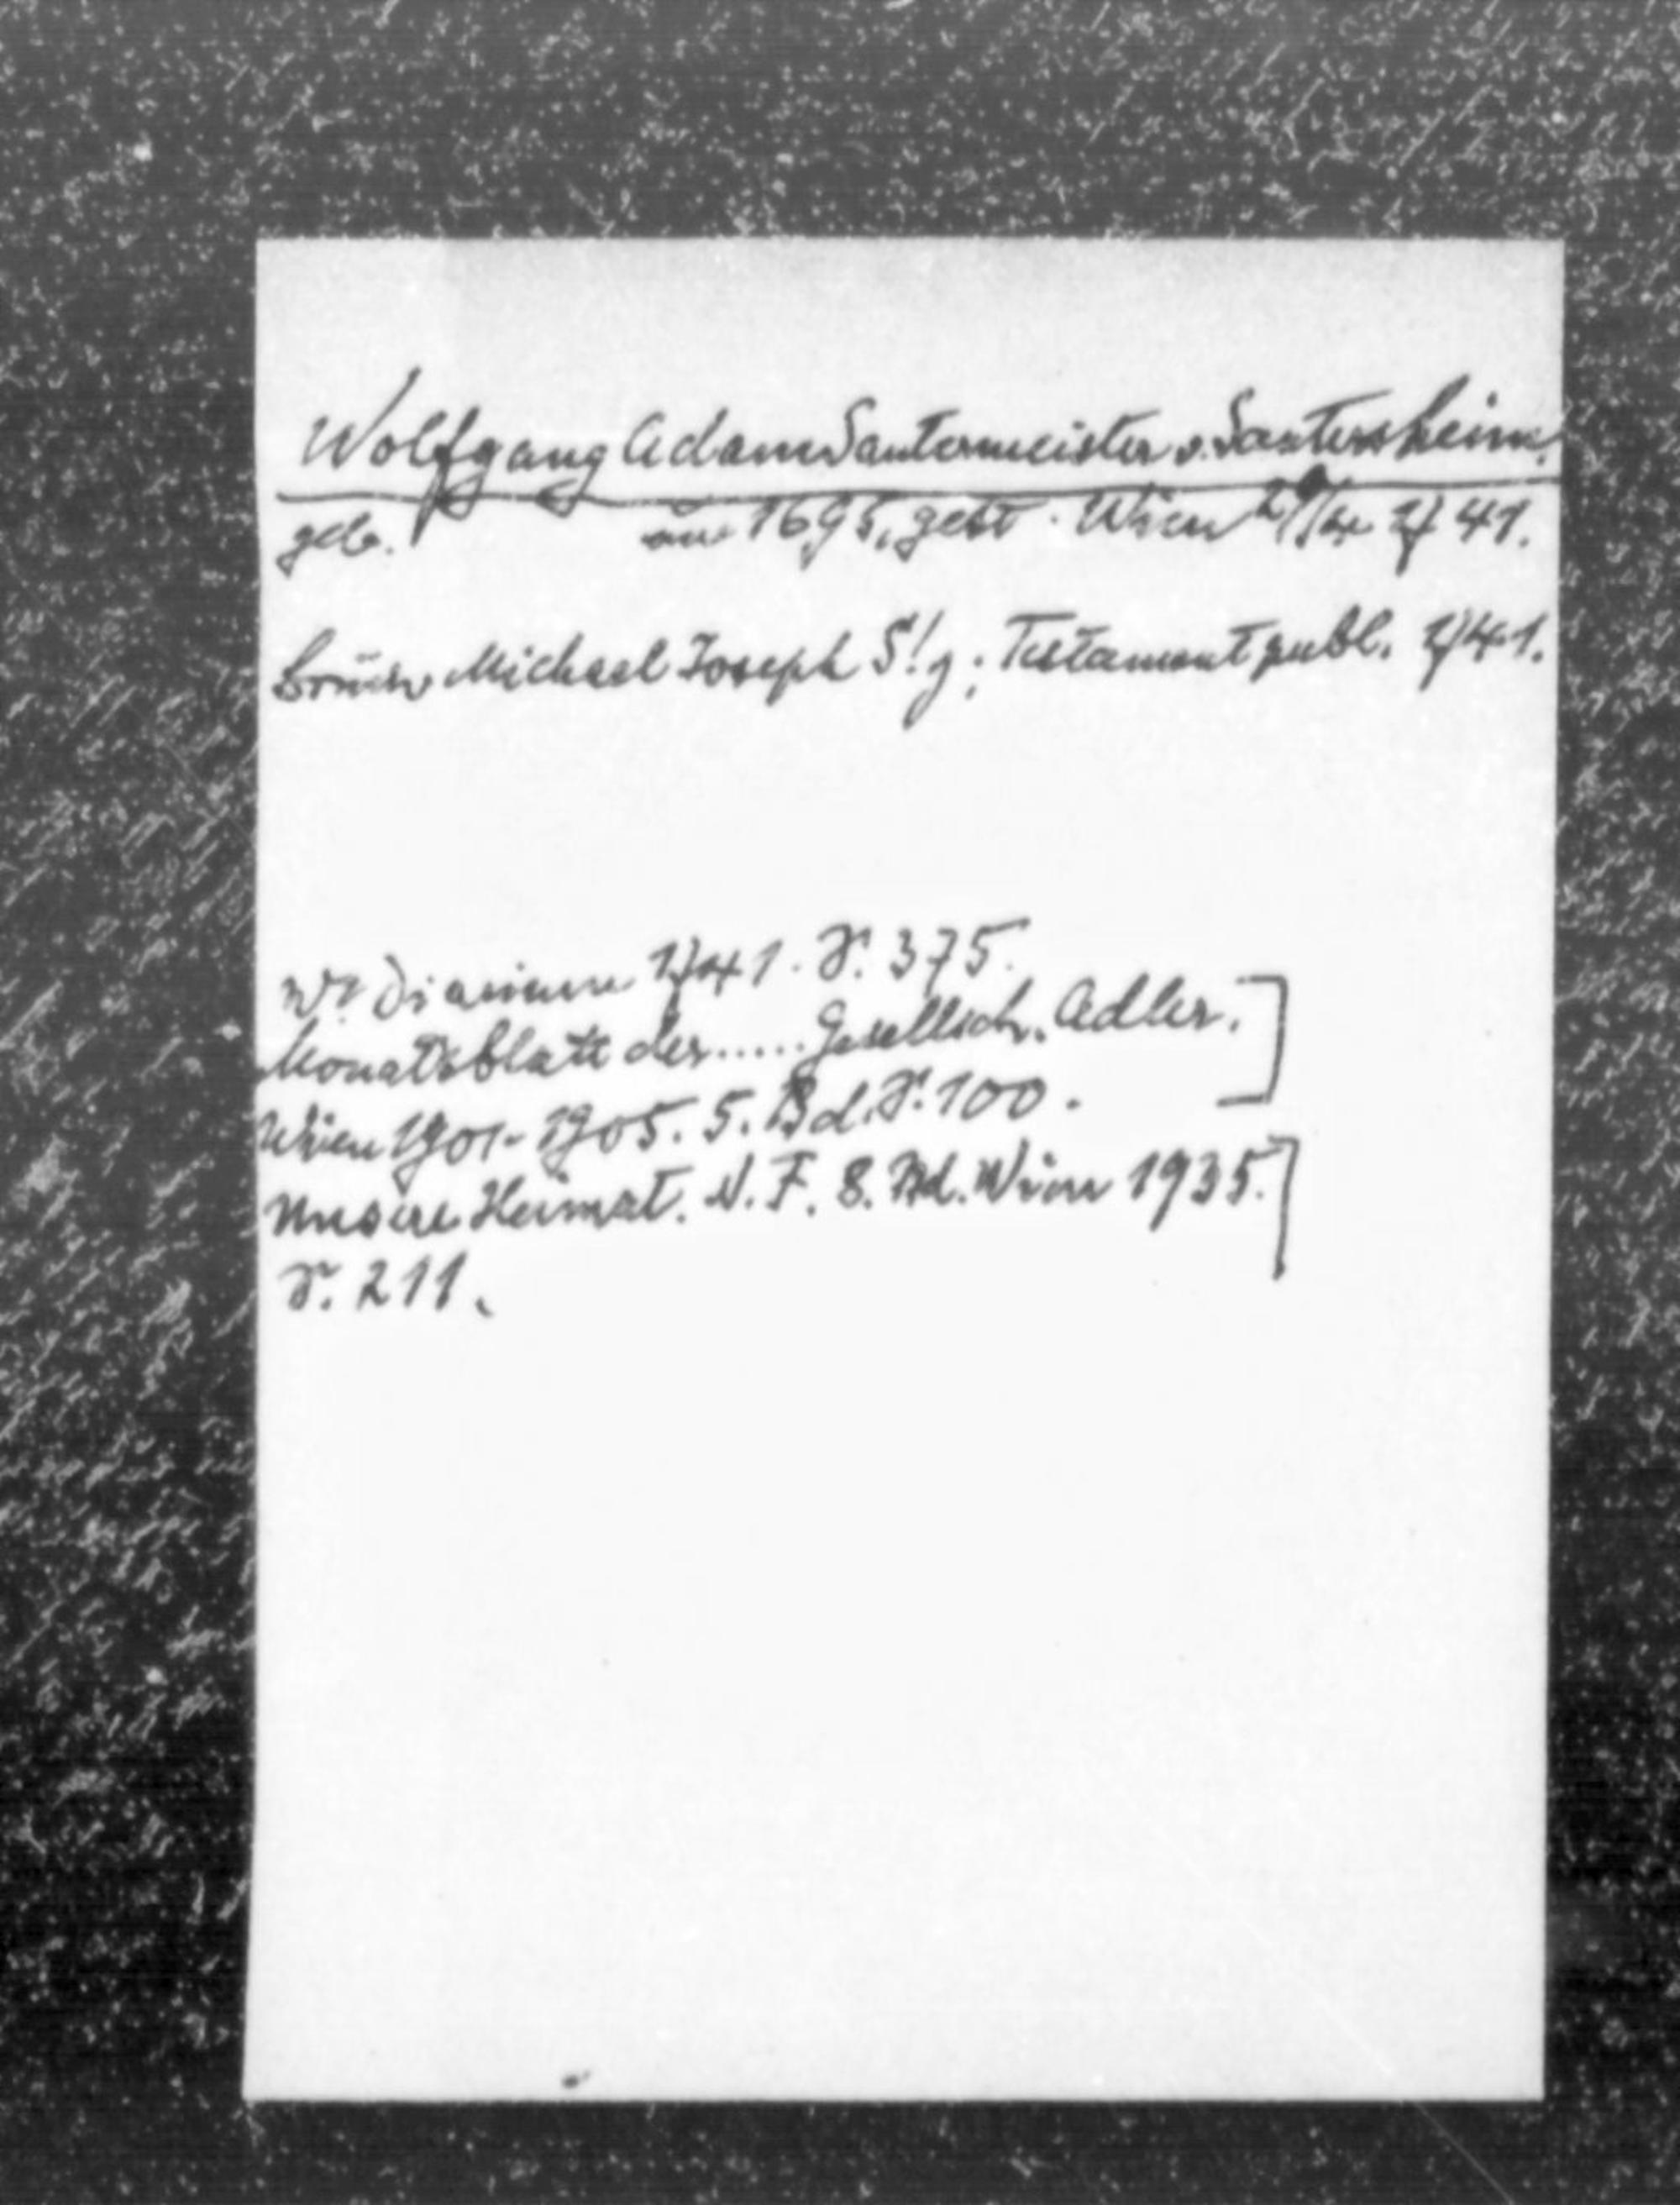 Wolfgang Adam Santermeister v. Santersheim.
geb. um 1695, gest. Wien 1741.
Bruder Michael Joseph S! g; Testament publ. 1741.
Wr. Diarium 1741. S. 375.
Monatsblatt der..... Gesellsch. Adler.
Wien 1901-1905. 5. Bd. S. 100.
Unsere Heimat. N. F. 8. Bd. Wien 1935.
S. 211.